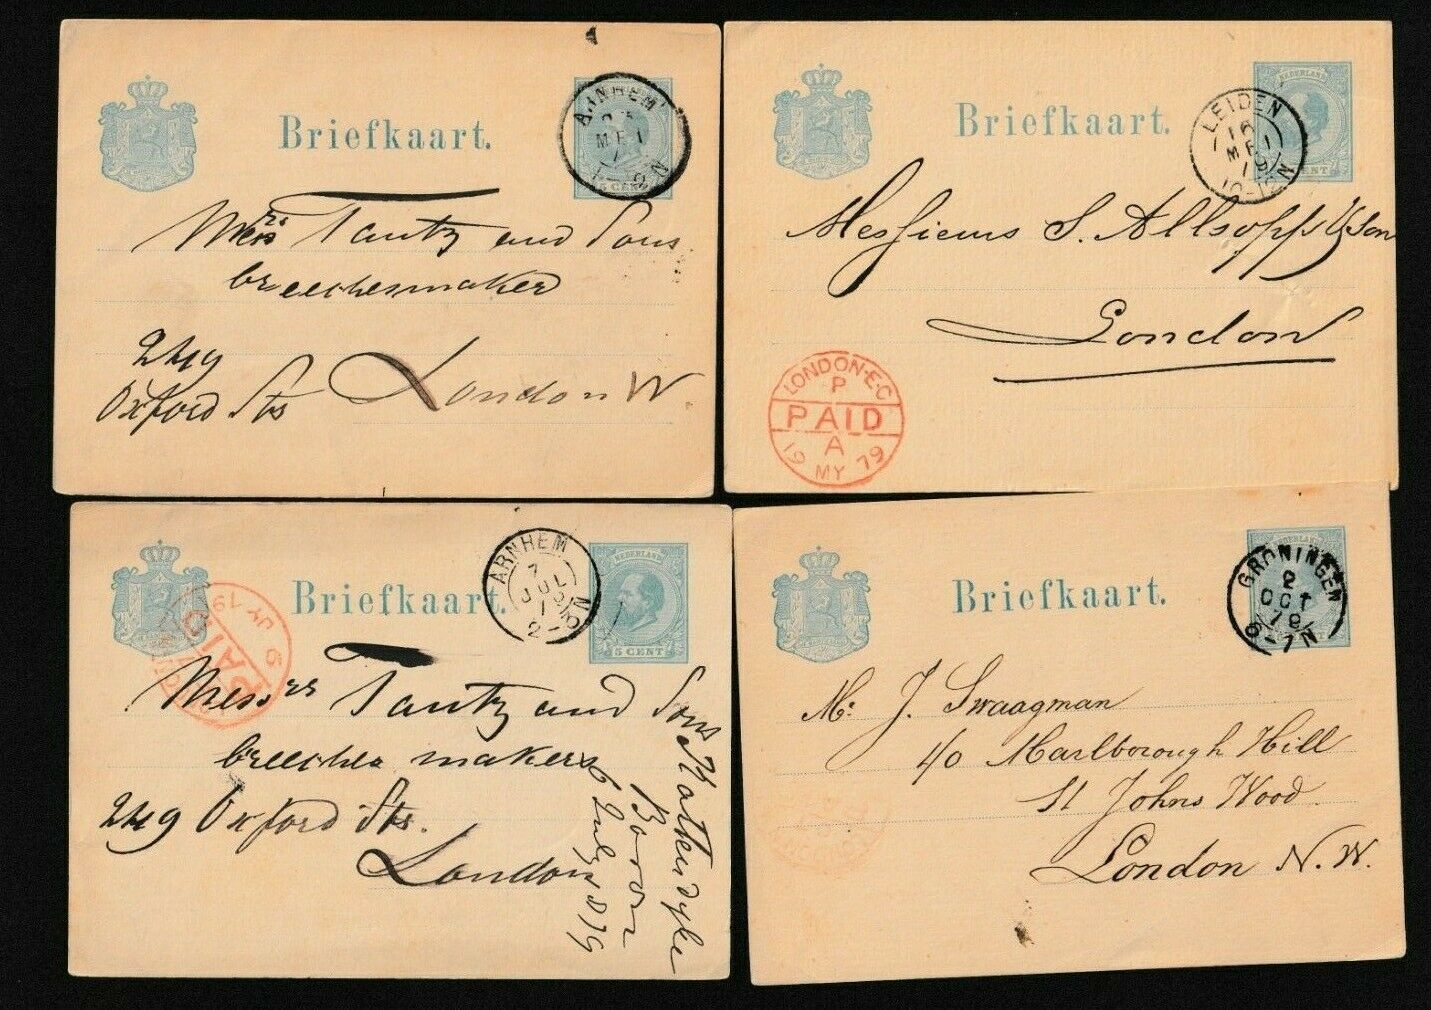 Briefkaart.
ARNHEM
MEI
5 CENT
Messrs Tautz and Sons
breechesmaker
249
Oxford Sts London W
Briefkaart.
NEDERLAND
LEIDEN
16
MEI
10-12N
CENT
Messieurs S. Allsopps & Son
London
LONDON-E.C
P
PAID
A
19 MY 79
Briefkaart.
ARNHEM
7
JUL
NEDERLAND
5 CENT
PAID
JY 79
Messrs Tautz and Sons
breeches makers
249 Oxford Sts.
London
6 July 1879
Briefkaart.
GRONINGEN
2
OCT
Mr. J. Swaagman
40 Marlborough Hill
St Johns Wood.
London N.W.